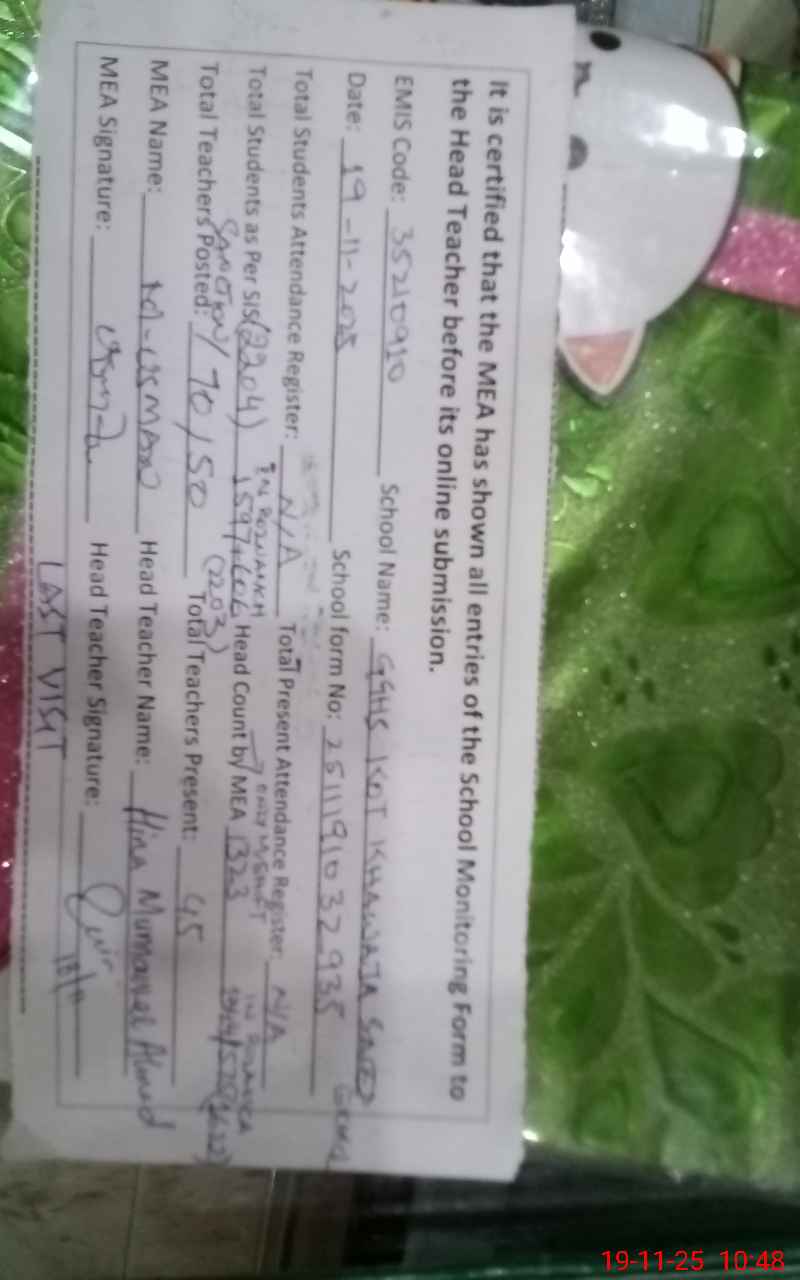 It is certified that the MEA has shown all entries of the School Monitoring Form to
the Head Teacher before its online submission.
EMIS Code: 35210910 School Name: GGHS KOT KHAWAJA SAEED
Date: 19-11-2025 School form No: 251119103 2935
Total Students Attendance Register: N/A Total Present Attendance Register: N/A
Total Students as Per SIS (2204) 1597+606 Head Count by MEA 1323
(2203)
Total Teachers Posted: 70/50 Total Teachers Present: 45
MEA Name: M-USMAN Head Teacher Name: Hina Ahmed
MEA Signature: Head Teacher Signature:
LAST VISIT
19-11-25 10:48